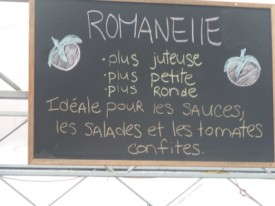 ROMANEllE
• plus juteuse
• plus petite
• plus RONdE
IdéAlE pouR lES SAUCES,
lES SAlAdES Et lES tOMAtES
CONfitES.